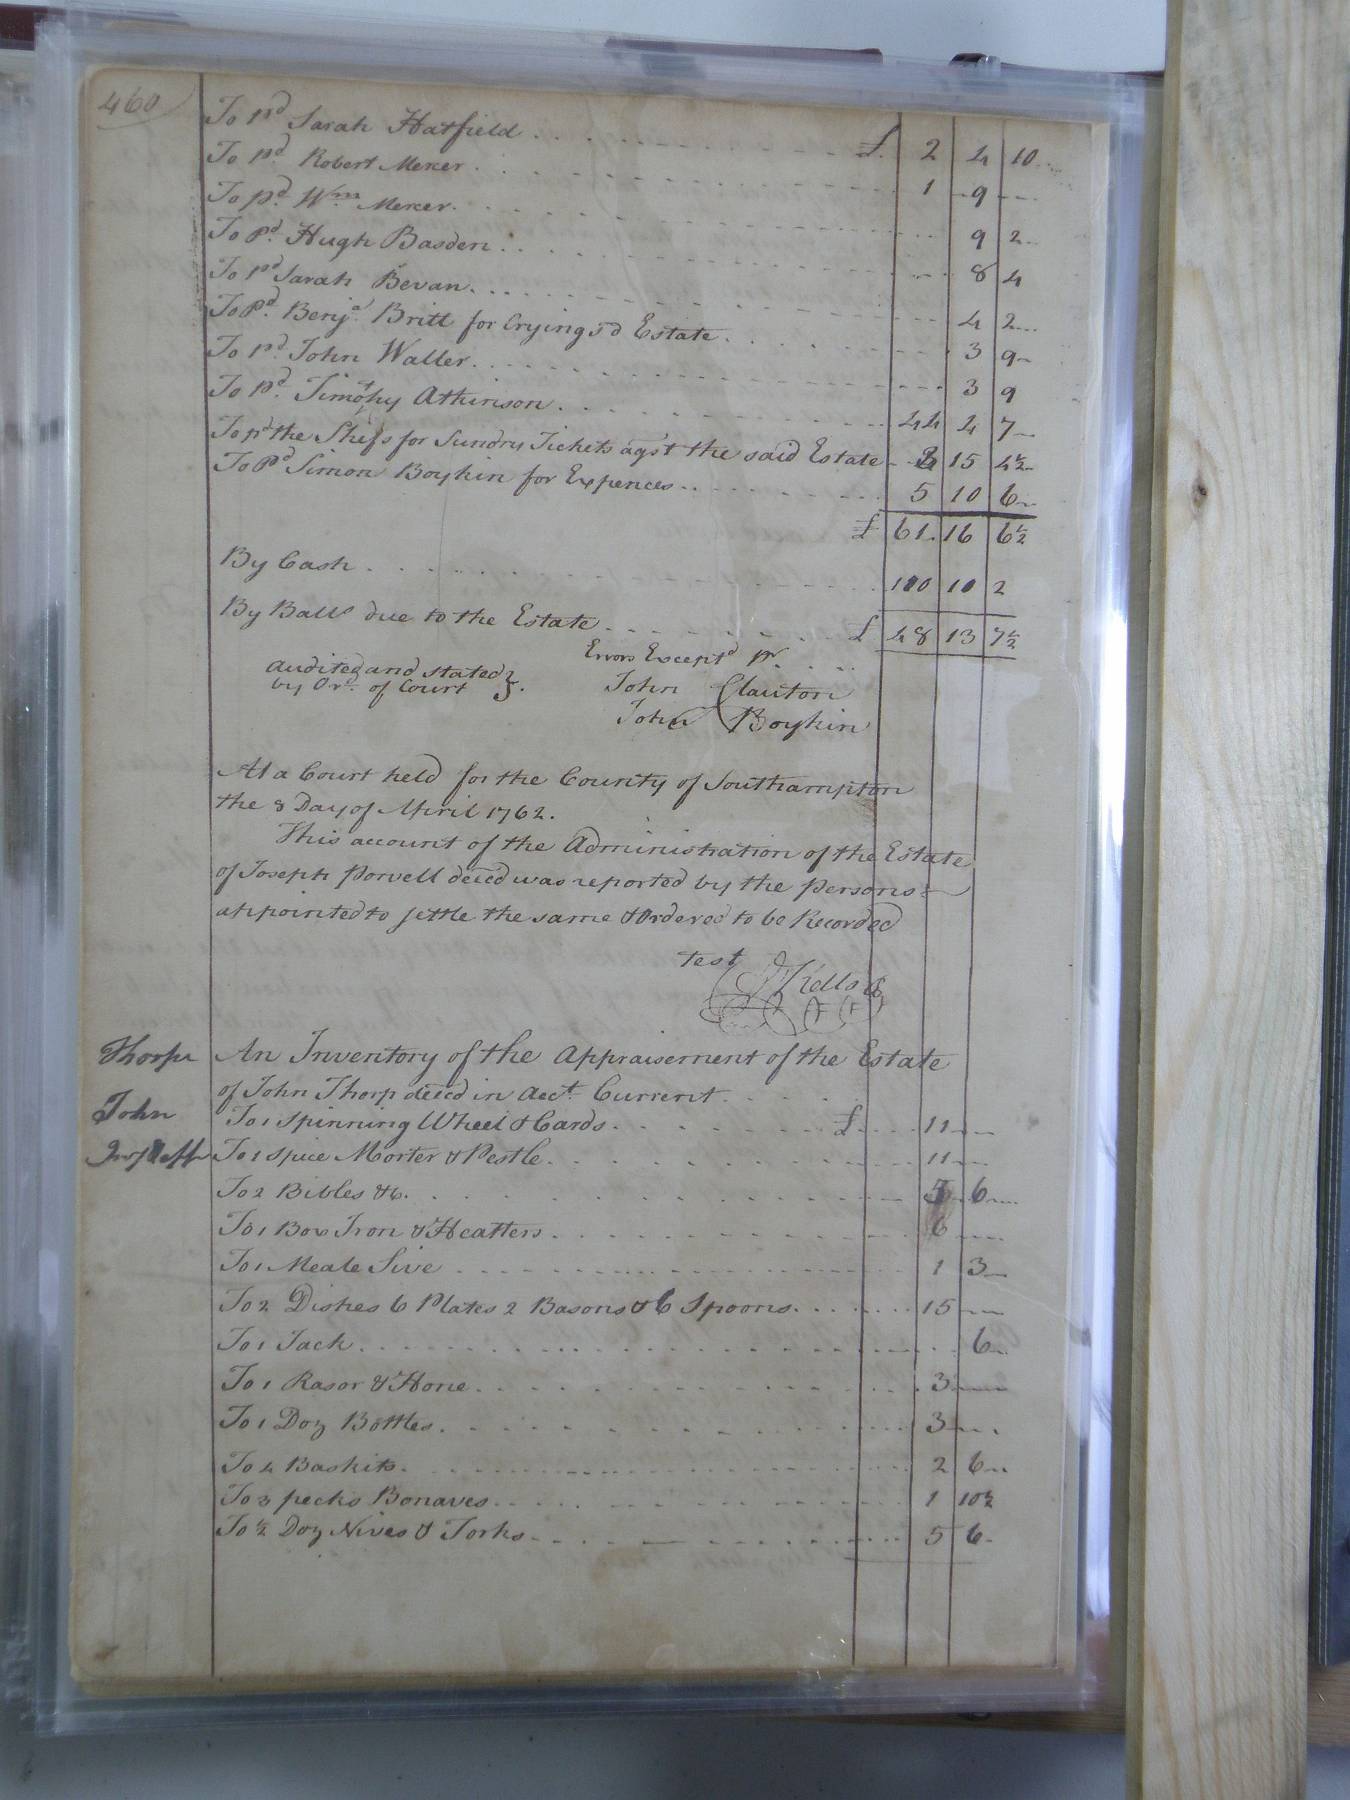 460
To Pd Sarah Hatfield . . . £. 2 4 10
To pd Robert Mercer . . . 1 9
To pd Wm Mercer . . . 9 2
To Pd Hugh Basden . . . 8 4
To Pd Sarah Bevan . . . 4 2
To Pd Benja Britt for Crying sd Estate . . . 3 9
To Pd John Waller . . . 3 9
To Pd Timothy Atkinson . . . 44 4 7
To pd the Shefs for Sundry Tickets agst the said Estate 15 4½
To Pd Simon Boykin for Expences . . . 5 10 6
£ 61 16 6½
By Cash . . . 110 10 2
By Balle due to the Estate . . . £ 48 13 7½
Errors Exceptd pr
Audited and Stated
by Ord of Court
John Clauton
John Boykin
At a Court held for the County of Southampton
the 8 Day of April 1762.
This account of the Administration of the Estate
of Joseph Powell deced was reported by the persons
appointed to settle the same & Ordered to be Recorded
test
Kello
Thorpe
John
An Inventory of the Appraisement of the Estate
of John Thorp deced in Acct Current
To 1 Spinning Wheel & Cards . . . £ 11
To 1 Spice Morter & Pestle . . . 11
To 2 Bibles &c. . . . 5 6
To 1 Box Iron & Heatters . . . 6
To 1 Meale Sive . . . 1 3
To 2 Dishes 6 Plates 2 Basons & 6 Spoons . . . 15
To 1 Jack . . . 6
To 1 Rasor & Hone . . . 3
To 1 Doz Bottles . . . 3
To 4 Baskits . . . 2 6
To 3 pecks Bonaves . . . 1 10½
To ½ Doz Nives & Forks . . . 5 6